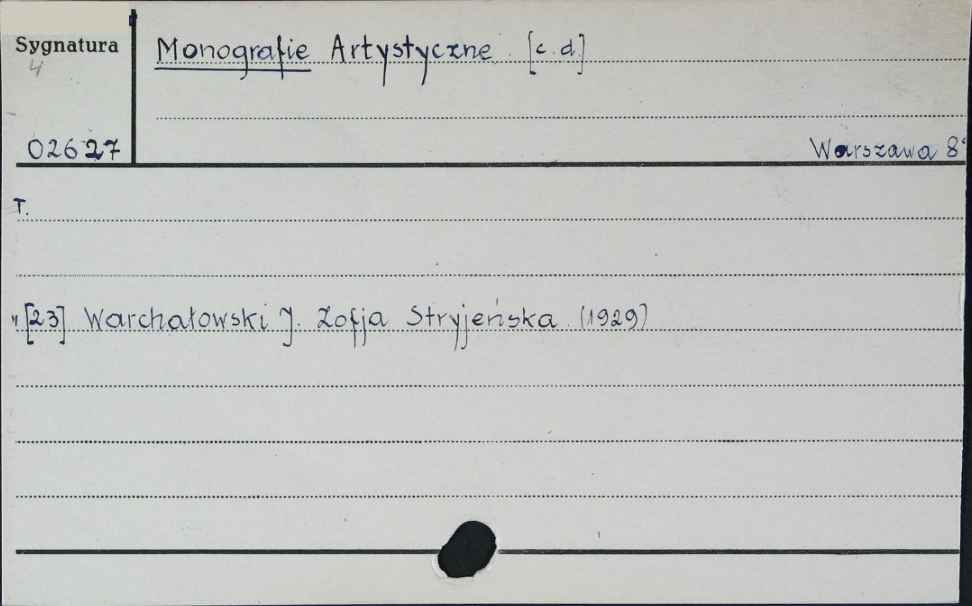 Sygnatura
4
Monografie Artystyczne. [c.d.]
02627
Warszawa 8°
T.
" [23] Warchałowski J. Zofja Stryjeńska. (1929)